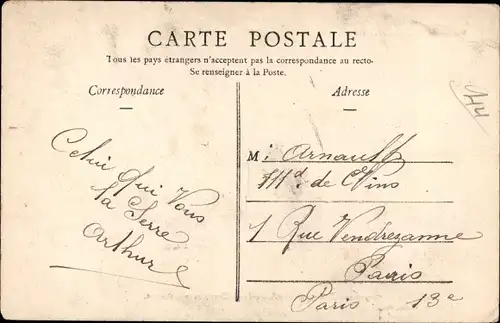 CARTE POSTALE
Tous les pays étrangers n'acceptent pas la correspondance au recto.
Se renseigner à la Poste.
Correspondance
Adresse
44
Celui qui Vous
la Serre
Arthur
M. Arnault
Md. de Vins
1 Rue Vendrezanne
Paris
Paris 13e